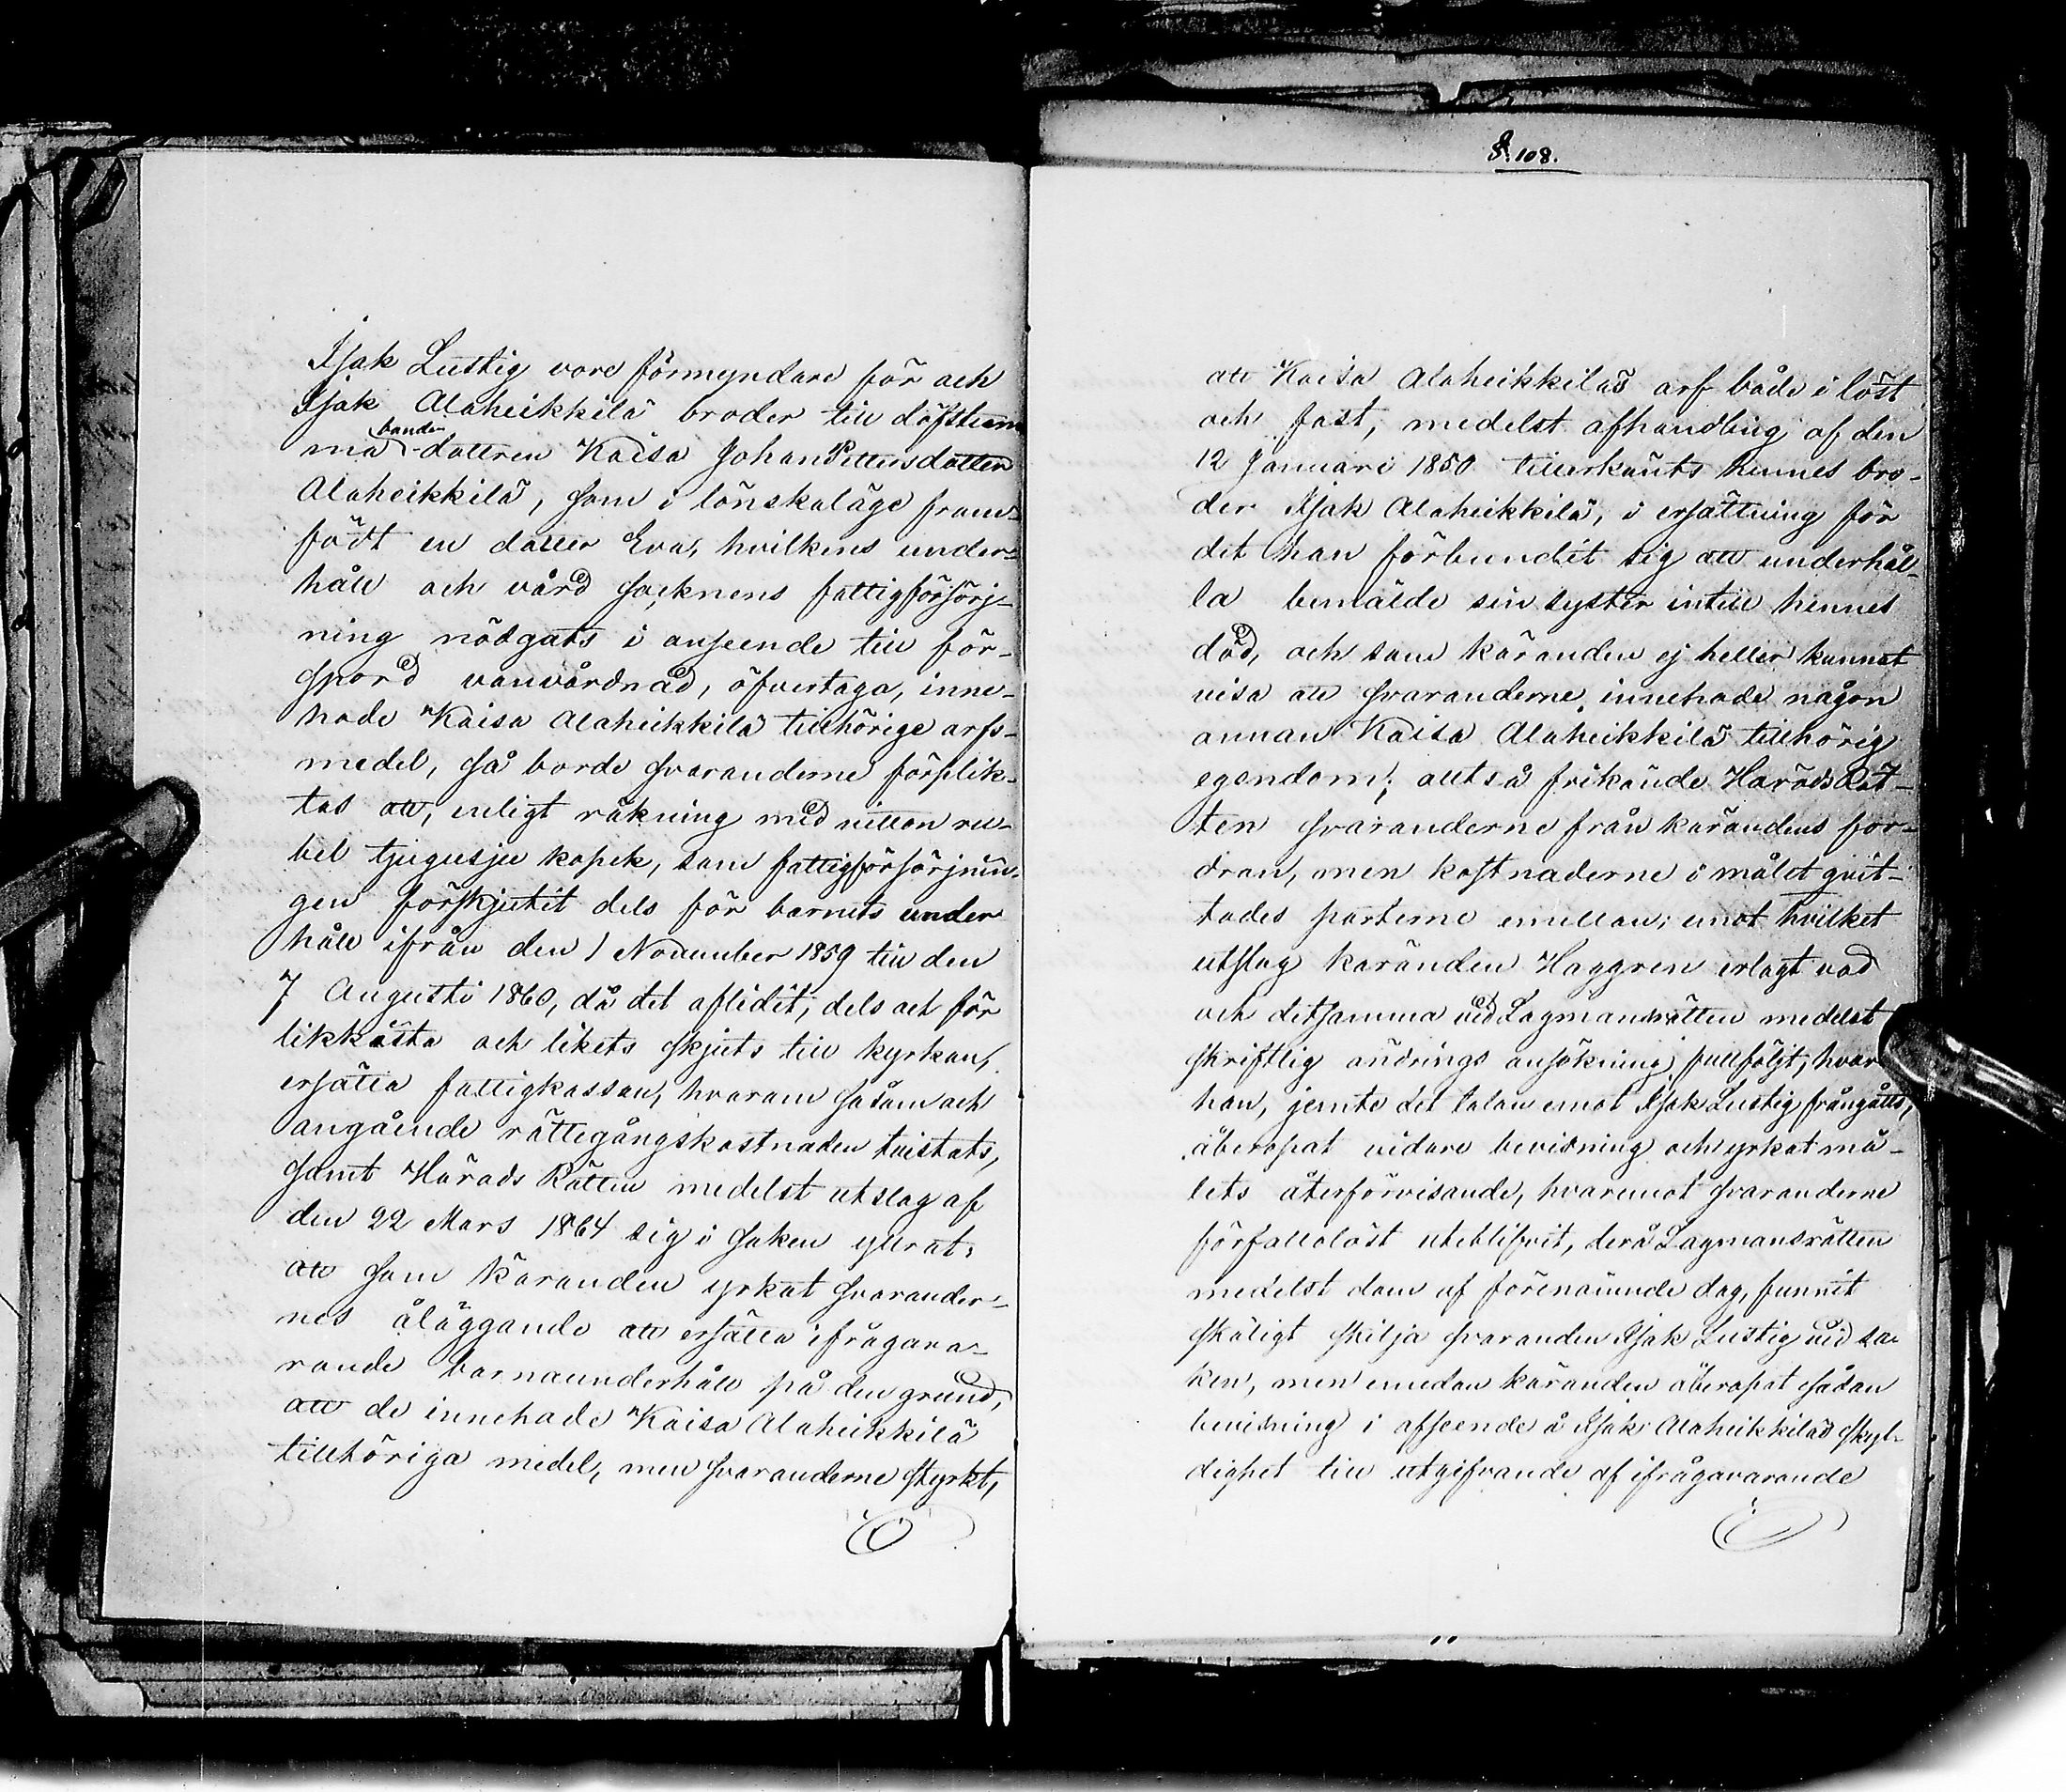 Isak Lustig vore förmyndare för och
Isak Alaheikkilä broder till döfstum¬
ma bonde-dottren Kaisa Johan Pettersdotter
Alaheikkilä, som i lönskaläge fram¬
födt en dotter Eva, hvilkens under¬
håll och vård socknens fattigförsörj¬
ning nödgats i anseende till för¬
spord vanvårdnad, öfvertaga, inne¬
hade Kaisa Alaheikkilä tillhörige arfs¬
medel, så borde svaranderne förplik¬
tas att, enligt räkning med nitton ru¬
bel tjugusju kopek, som fattigförsörjnin¬
gen förskjutit dels för barnets under
håll ifrån den 1 November 1859 till den
7 Augusti 1860, då det aflidit, dels ock för
likkista och likets skjuts till kyrkan,
ersätta fattigkassan, hvarom såsom och
angående rättegångskostnaden tvistats,
samt Härads Rätten medelst utslag af
den 22 Mars 1864 sig i saken yttrat:
att som käranden yrkat svarander¬
nes åläggande att ersätta ifrågava¬
rande barnaunderhåll på den grund,
att de innehade Kaisa Alaheikkilä
tillhöriga medel, men svaranderne styrkt,
S. 108.
att Kaisa Alaheikkiläs arf både i löst
och fast, medelst afhandling af den
12 Januari 1850 tillerkänts hennes bro¬
der Isak Alaheikkilä, i ersättning för
det han förbundit sig att underhål¬
la bemälde sin syster intill hennes
död, och som käranden ej heller kunnat
visa att svaranderne innehade någon
annan Kaisa Alaheikkilä tillhörig
egendom; alltså frikände HäradsRät¬
ten svaranderne från kärandens for¬
dran, men kostnaderne i målet qvit¬
tades parterne emellan; emot hvilket
utslag käranden Haggren erlagt vad
och detsamma vid Lagmansrätten medelst
skriftlig ändrings ansökning fullföljt, hvar
han, jemte det talan emot Isak Lustig frångåtts,
åberopat vidare bevisning och yrkat må¬
lets återförvisande, hvaremot svaranderne
förfallolöst uteblifvit, derå Lagmansrätten
medelst dom af förenämnde dag, funnit
skäligt skilja svaranden Isak Lustig vid sa¬
ken, men emedan käranden åberopat sådan
bevisning i afseende å Isak Alaheikkiläs skyl¬
dighet till utgifvande af ifrågavarande